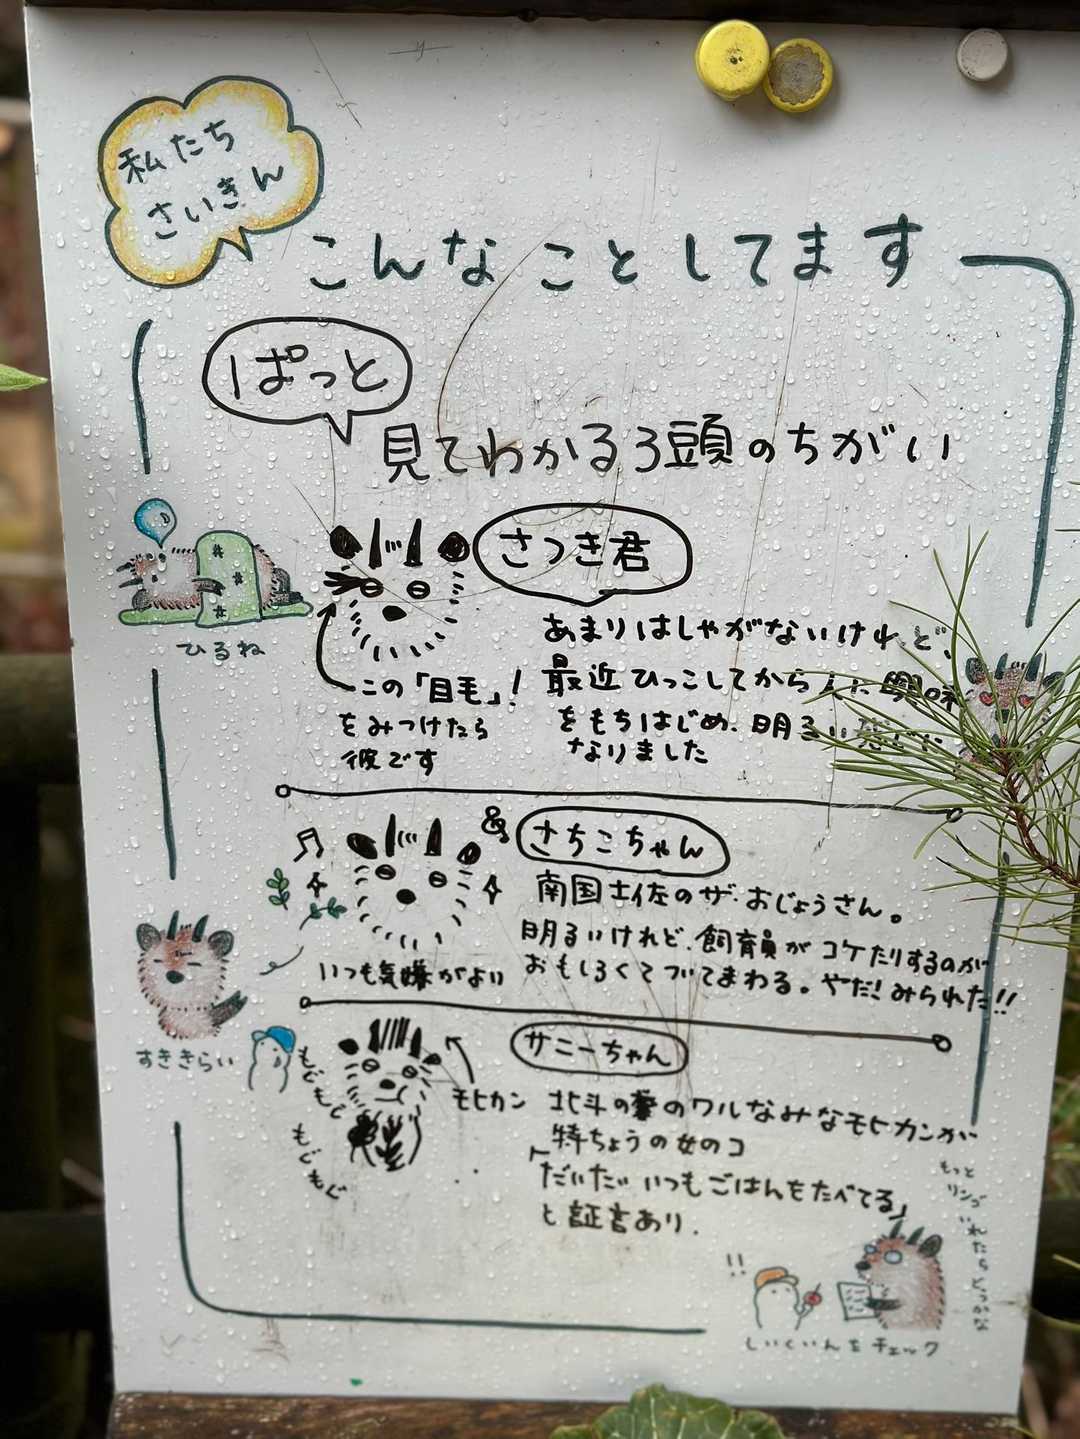 私たち
さいきん
こんなことしてます
ぱっと
見てわかる3頭のちがい
さつき君
ひるね
この「目毛」!
をみつけたら
彼です
あまりはしゃがないけれど、
最近ひっこしてから人に興味
をもちはじめ、明るい
なりました
&
さちこちゃん
南国土佐のザ・おじょうさん。
明るいけれど、飼育員がコケたりするのが
おもしろくてついてまわる。やだ!みられた!!
いつも気嫌がよい
すききらい
サニーちゃん
もぐ
もぐ
もぐ
もぐ
モヒカン
北斗の拳のワルなみなモヒカンが
特ちょうの女のコ
「だいたいいつもごはんをたべてる」
と証言あり.
もっと
リンゴ
いれたらどうかな
!!
しいくいんをチェック